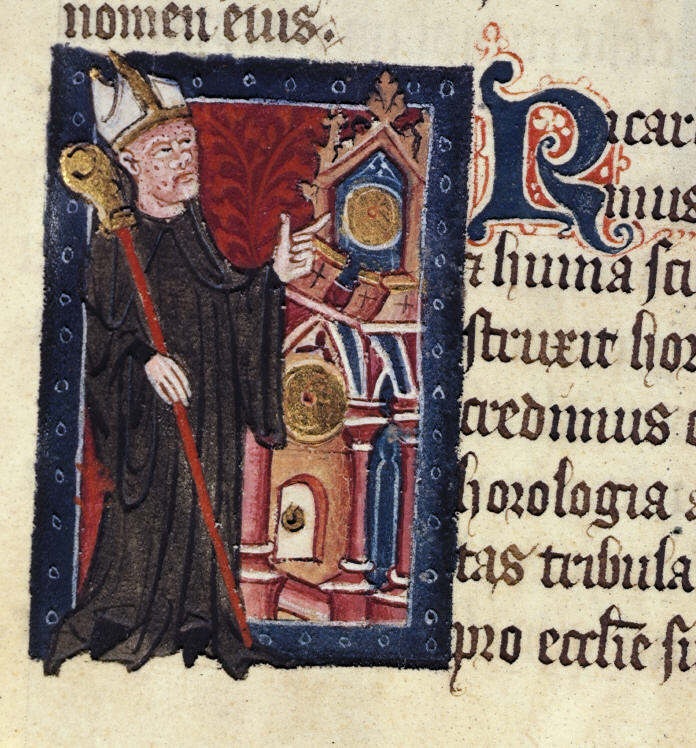 nomen eius.
Ricar
mus
⁊ huma sci
struxit hor
credimus
horologia a
tas tribula
pro ecclie si